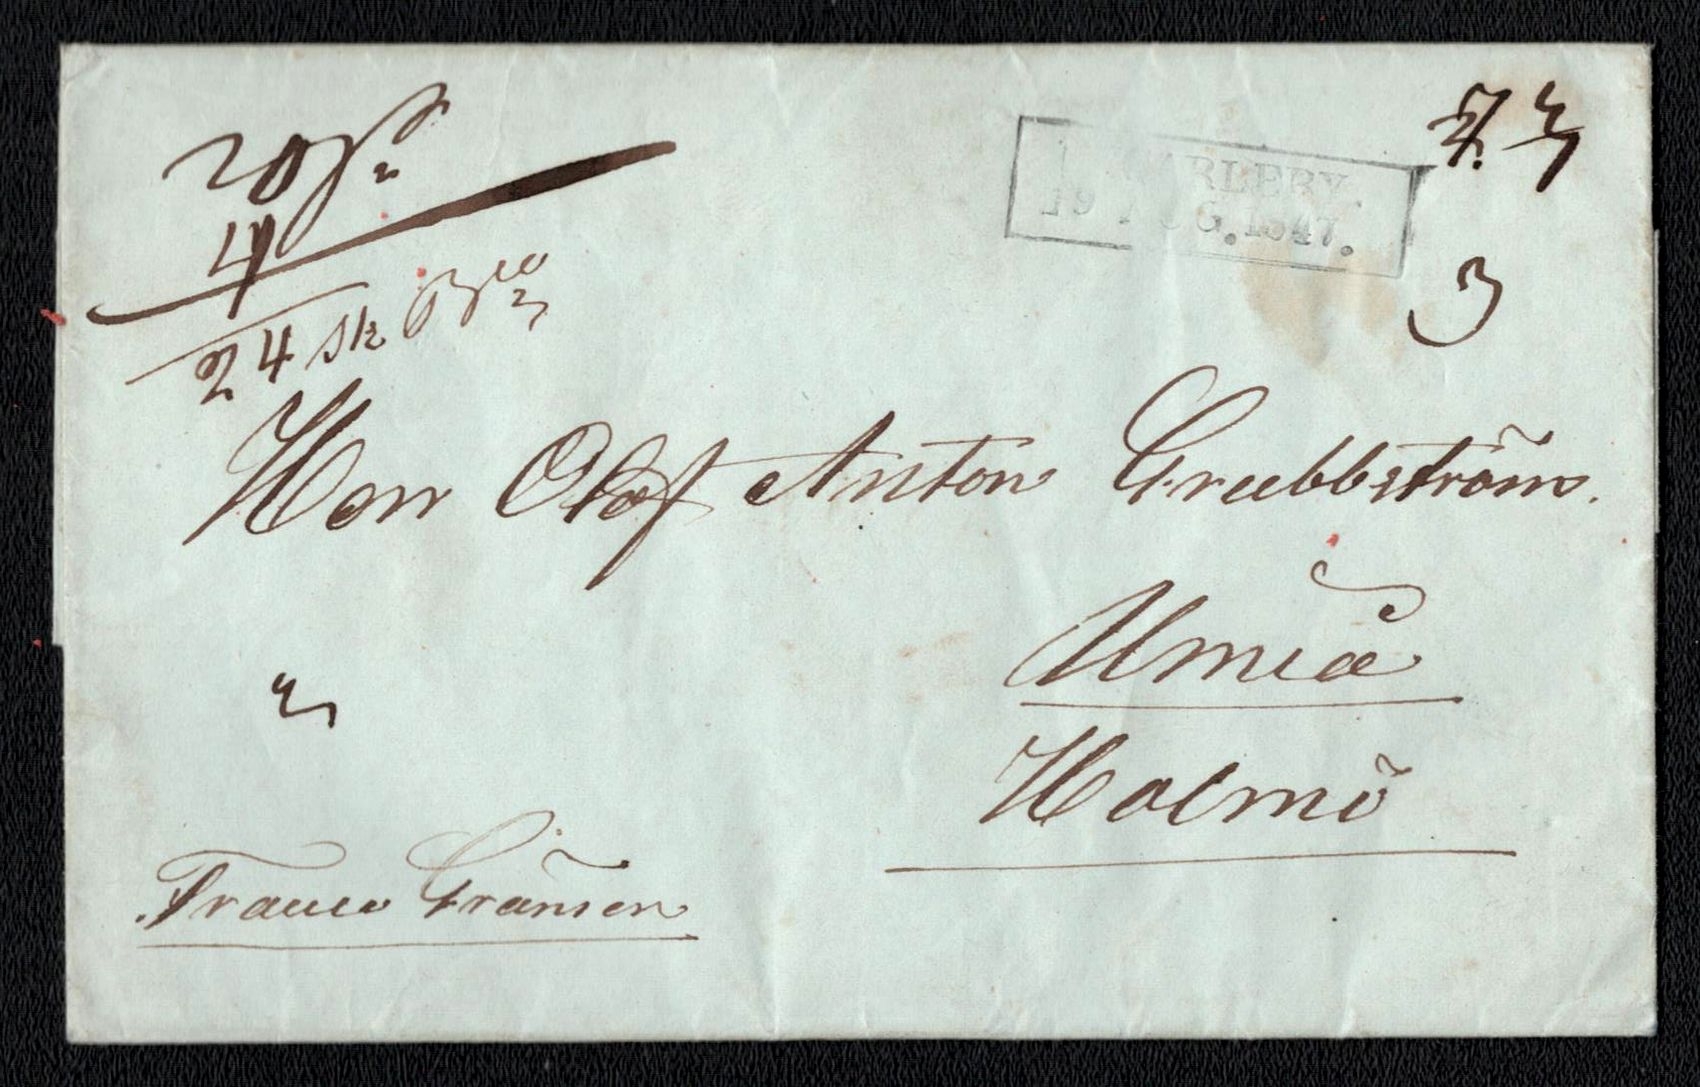 20
4
24 sk Bco
ARLEBY.
19 AUG. 1847.
3
Herr Olof Anton Grubbström.
Umeå
Holmö
Franco Gränsen